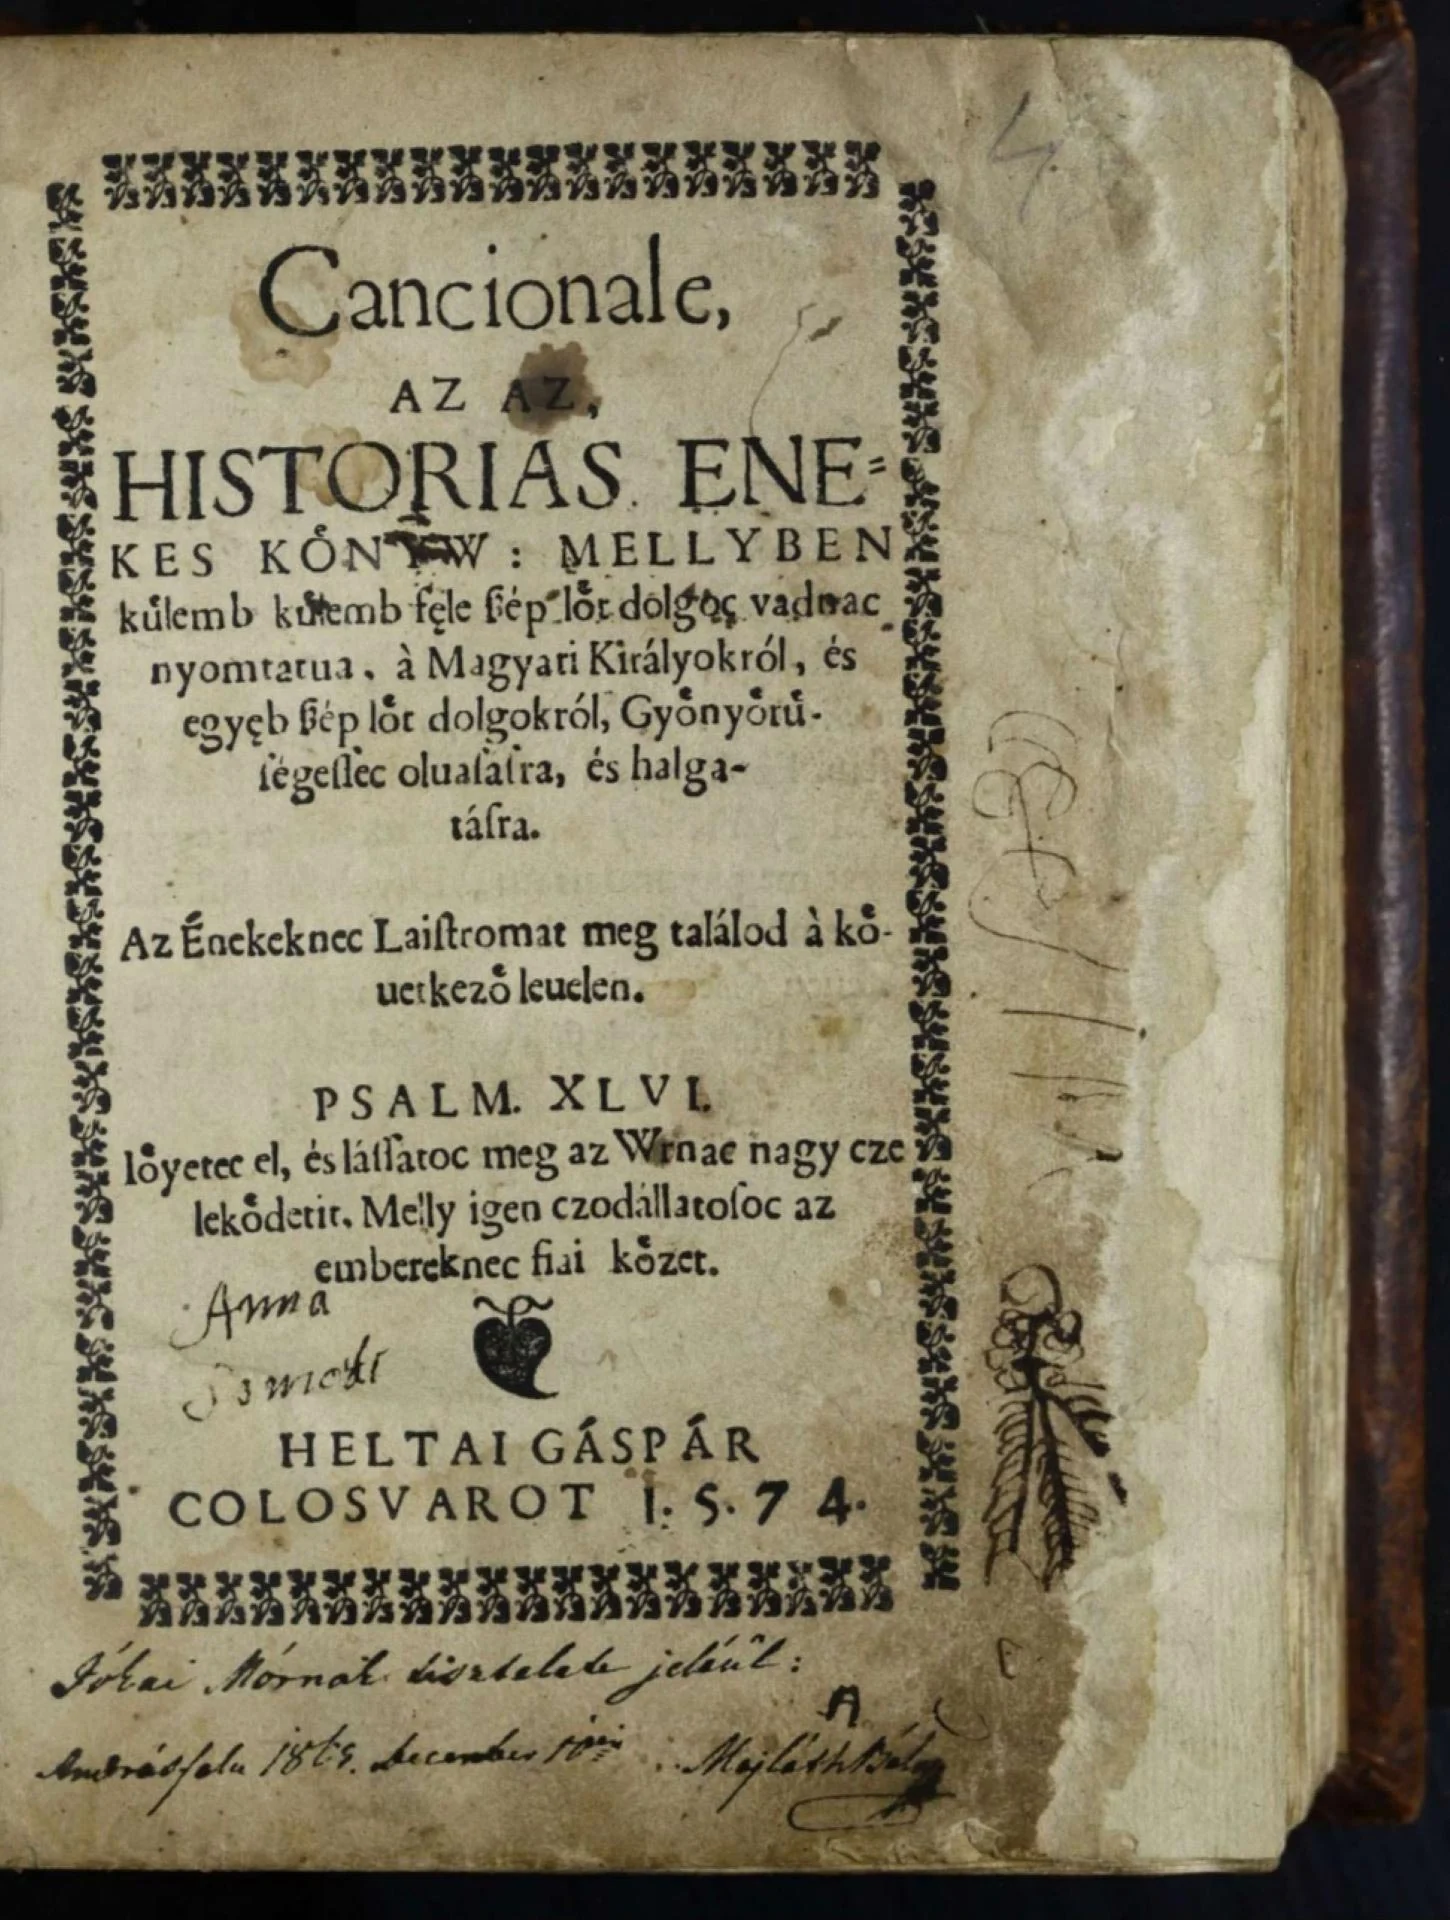 Cancionale,
AZ AZ,
HISTORIAS ENE=
KES KŐNYW: MELLYBEN
kuͤlemb kuͤlemb fęle ßép loͤt dolgoc vadnac
nyomtatua, à Magyari Királyokról, és
egyęb ßép loͤt dolgokról, Gyoͤnyoͤruͤ-
ſégeſſec oluaſaſra, és halga-
táſra.
Az Énekeknec Laiſtromat meg találod à koͤ-
uetkezoͤ leuelen.
PSALM. XLVI.
Ioͤyetec el, és láſſatoc meg az Wrnac nagy cze
lekoͤdetit. Melly igen czodállatoſoc az
embereknec fiai koͤzet.
Anna
HELTAI GÁSPÁR
COLOSVAROT 1. 5. 7 4.
Jókai Mórnak tisztelete jeléül:
Andrásfalu december 10én Majláth Béla